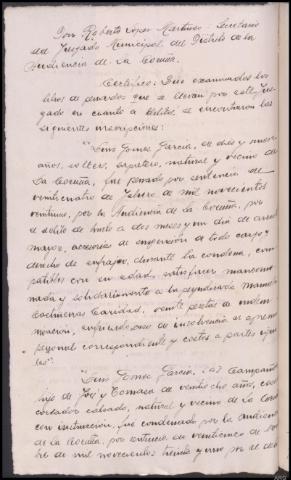 Don Roberto López Martínez, Secretario
del Juzgado Municipal del Distrito de la
Audiencia de La Coruña.
Certifico: Que examinados los
libros de penados que se llevan por este Juz-
gado en cuanto a delitos, se encontraron las
siguientes inscripciones:
"Luis Gomez Garcia, de diez y nueve
años, soltero, zapatero, natural y vecino de
La Coruña, fue penado por sentencia de
veinticuatro de Febrero de mil novecientos
veintiuno, por la Audiencia de La Coruña, por
el delito de hurto a dos meses y un dia de arresto
mayor, accesoria de suspensión de todo cargo y
derecho de sufragio, durante la condena, com-
patibles con su edad, satisfacer mancomu-
nada y solidariamente a la perjudicada Manuela
Caridad, veinte pesetas de indem-
nización, sufriendo caso de insolvencia el apremio
personal correspondiente y costas a partes igua-
les".
"Luis Gomez Garcia, (a) Campano
hijo de José y Tomasa de veintiocho años, casado
cortador calzado, natural y vecino de La Coruña
con instrucción, fue condenado por la Audiencia
de La Coruña, por sentencia de veinticinco de
bre de mil novecientos treinta y uno por el de